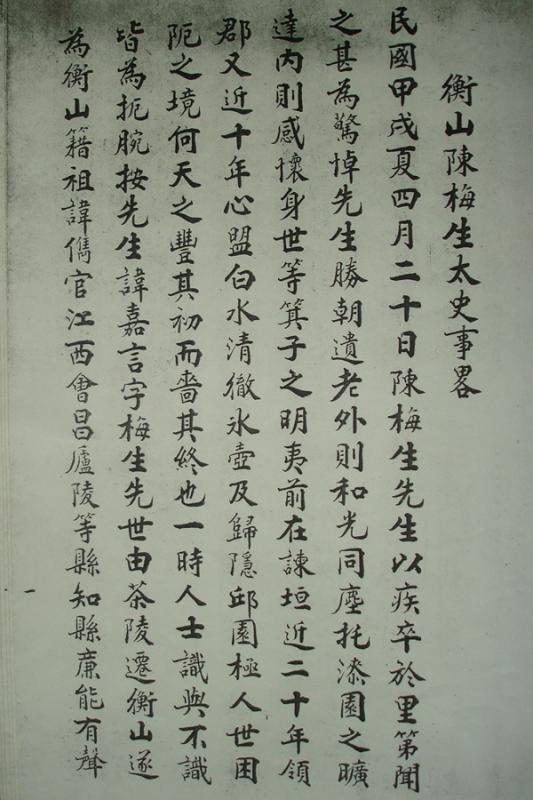 衡山陳梅生太史事畧
民國甲戌夏四月二十日陳梅生先生以疾卒於里第聞
之甚為驚悼先生勝朝遺老外則和光同塵托漆園之曠
達內則感懷身世等箕子之明夷前在諫垣近二十年領
郡又近十年心盟白水清徹氷壺及歸隱邱園極人世困
阨之境何天之豐其初而嗇其終也一時人士識與不識
皆為扼腕按先生諱嘉言字梅生先世由茶陵遷衡山遂
為衡山籍祖諱儁官江西會昌廬陵等縣知縣廉能有聲
一